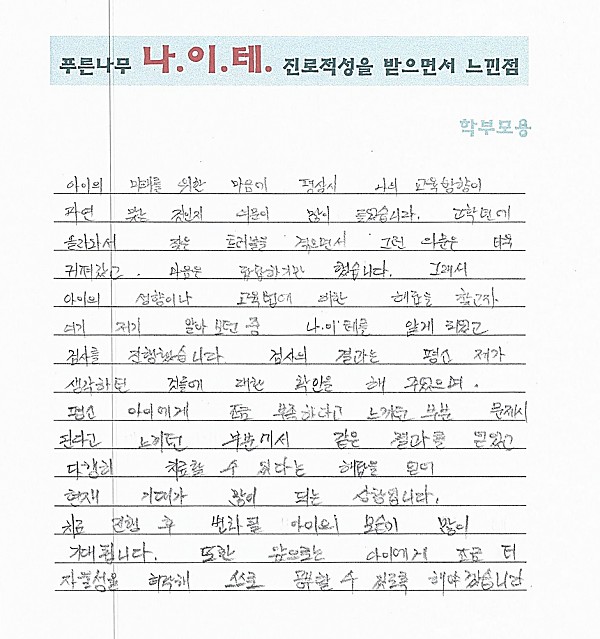 푸른나무 나.이.테. 진로적성을 받으면서 느낀점
학부모용
아이의 미래를 위한 마음에 평상시 나의 교육방향이
과연 맞는 것인지 의문이 많이 들었습니다. 고학년에
올라와서 잦은 트러블을 겪으면서 그런 의문은 더욱
커져갔고. 마음은 답답하기만 했습니다. 그래서
아이의 성향이나 교육법에 대한 해답을 찾고자
여기 저기 알아 보던 중 나.이.테를 알게 되었고
검사를 진행했습니다. 검사의 결과는 평소 제가
생각하던 것들에 대한 확인을 해 주었으며.
평소 아이에게 조금 부족하다고 느끼던 부분 문제시
된다고 느끼던 부분에서 같은 결과를 얻었고
다행히 치료할 수 있다는 해답을 얻어
현재 기대가 많이 되는 상황입니다.
치료 진행 후 변화될 아이의 모습이 많이
기대 됩니다. 또한 앞으로는 아이에게 조금 더
자율성을 허락해 스스로 공부할 수 있도록 해야 겠습니다